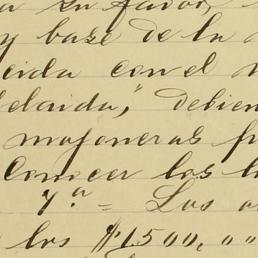 a su favor,
y base de la
cida con el
elaida," debien
mojoneras p
Conocer los l
7.ª = Los
los $1.500,00